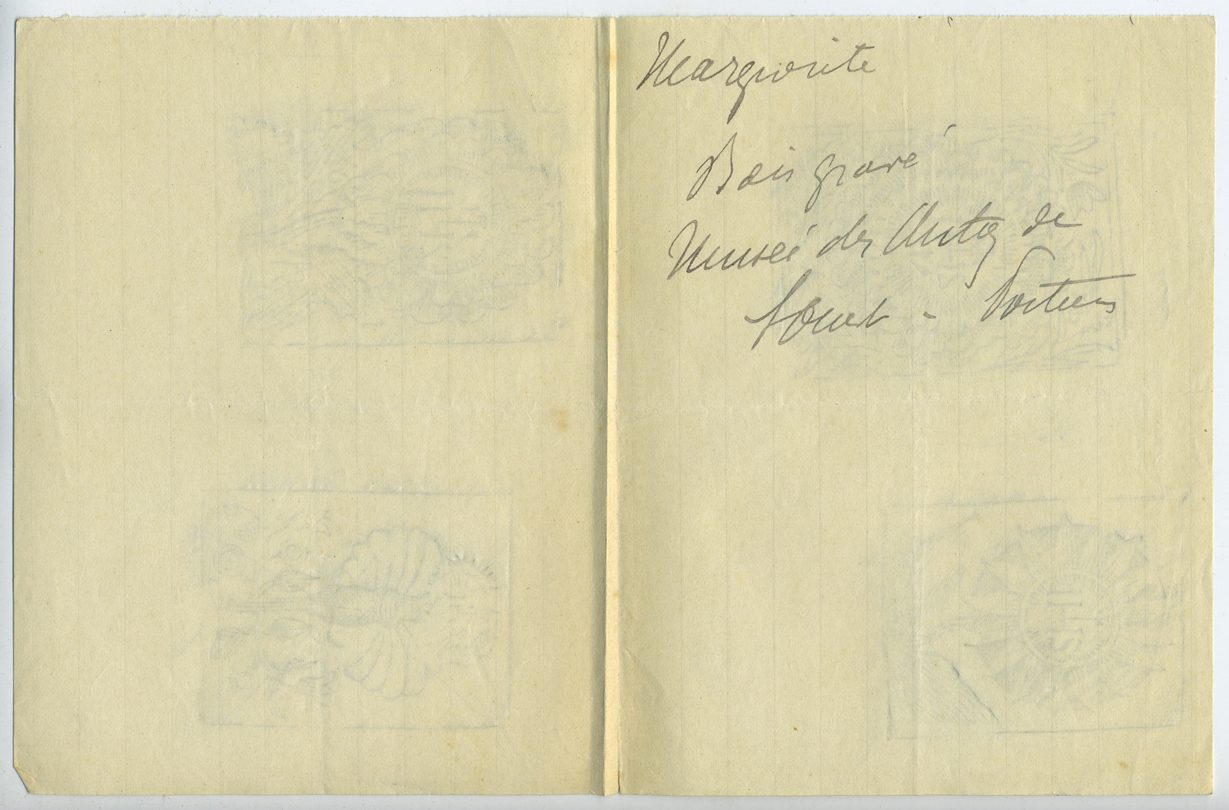 Marguerite
Bois gravé
Musée des Antiq de
l'Ouest - Poitiers